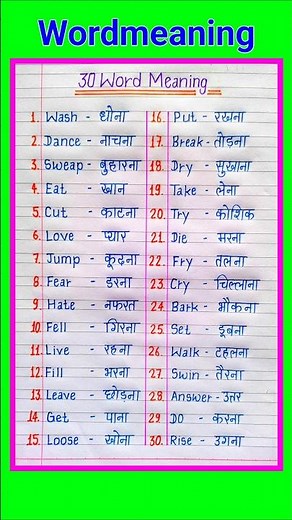 Wordmeaning
30 Word Meaning
1. Wash - धोना
2. Dance - नाचना
3. Sweap - बुहारना
4. Eat - खान
5. Cut - काटना
6. Love - प्यार
7. Jump - कूदना
8. Fear - डरना
9. Hate - नफरत
10. Fell - गिरना
11. Live - रहना
12. Fill - भरना
13. Leave - छोड़ना
14. Get - पाना
15. Loose - खोना
16. Put - रखना
17. Break - तोड़ना
18. Dry - सुखाना
19. Take - लेना
20. Try - कोशिक
21. Die - मरना
22. Fry - तलना
23. Cry - चिल्लाना
24. Bark - भौकना
25. Set - डूबना
26. Walk - टहलना
27. Swin - तैरना
28. Answer - उत्तर
29 DO - करना
30. Rise - उगना